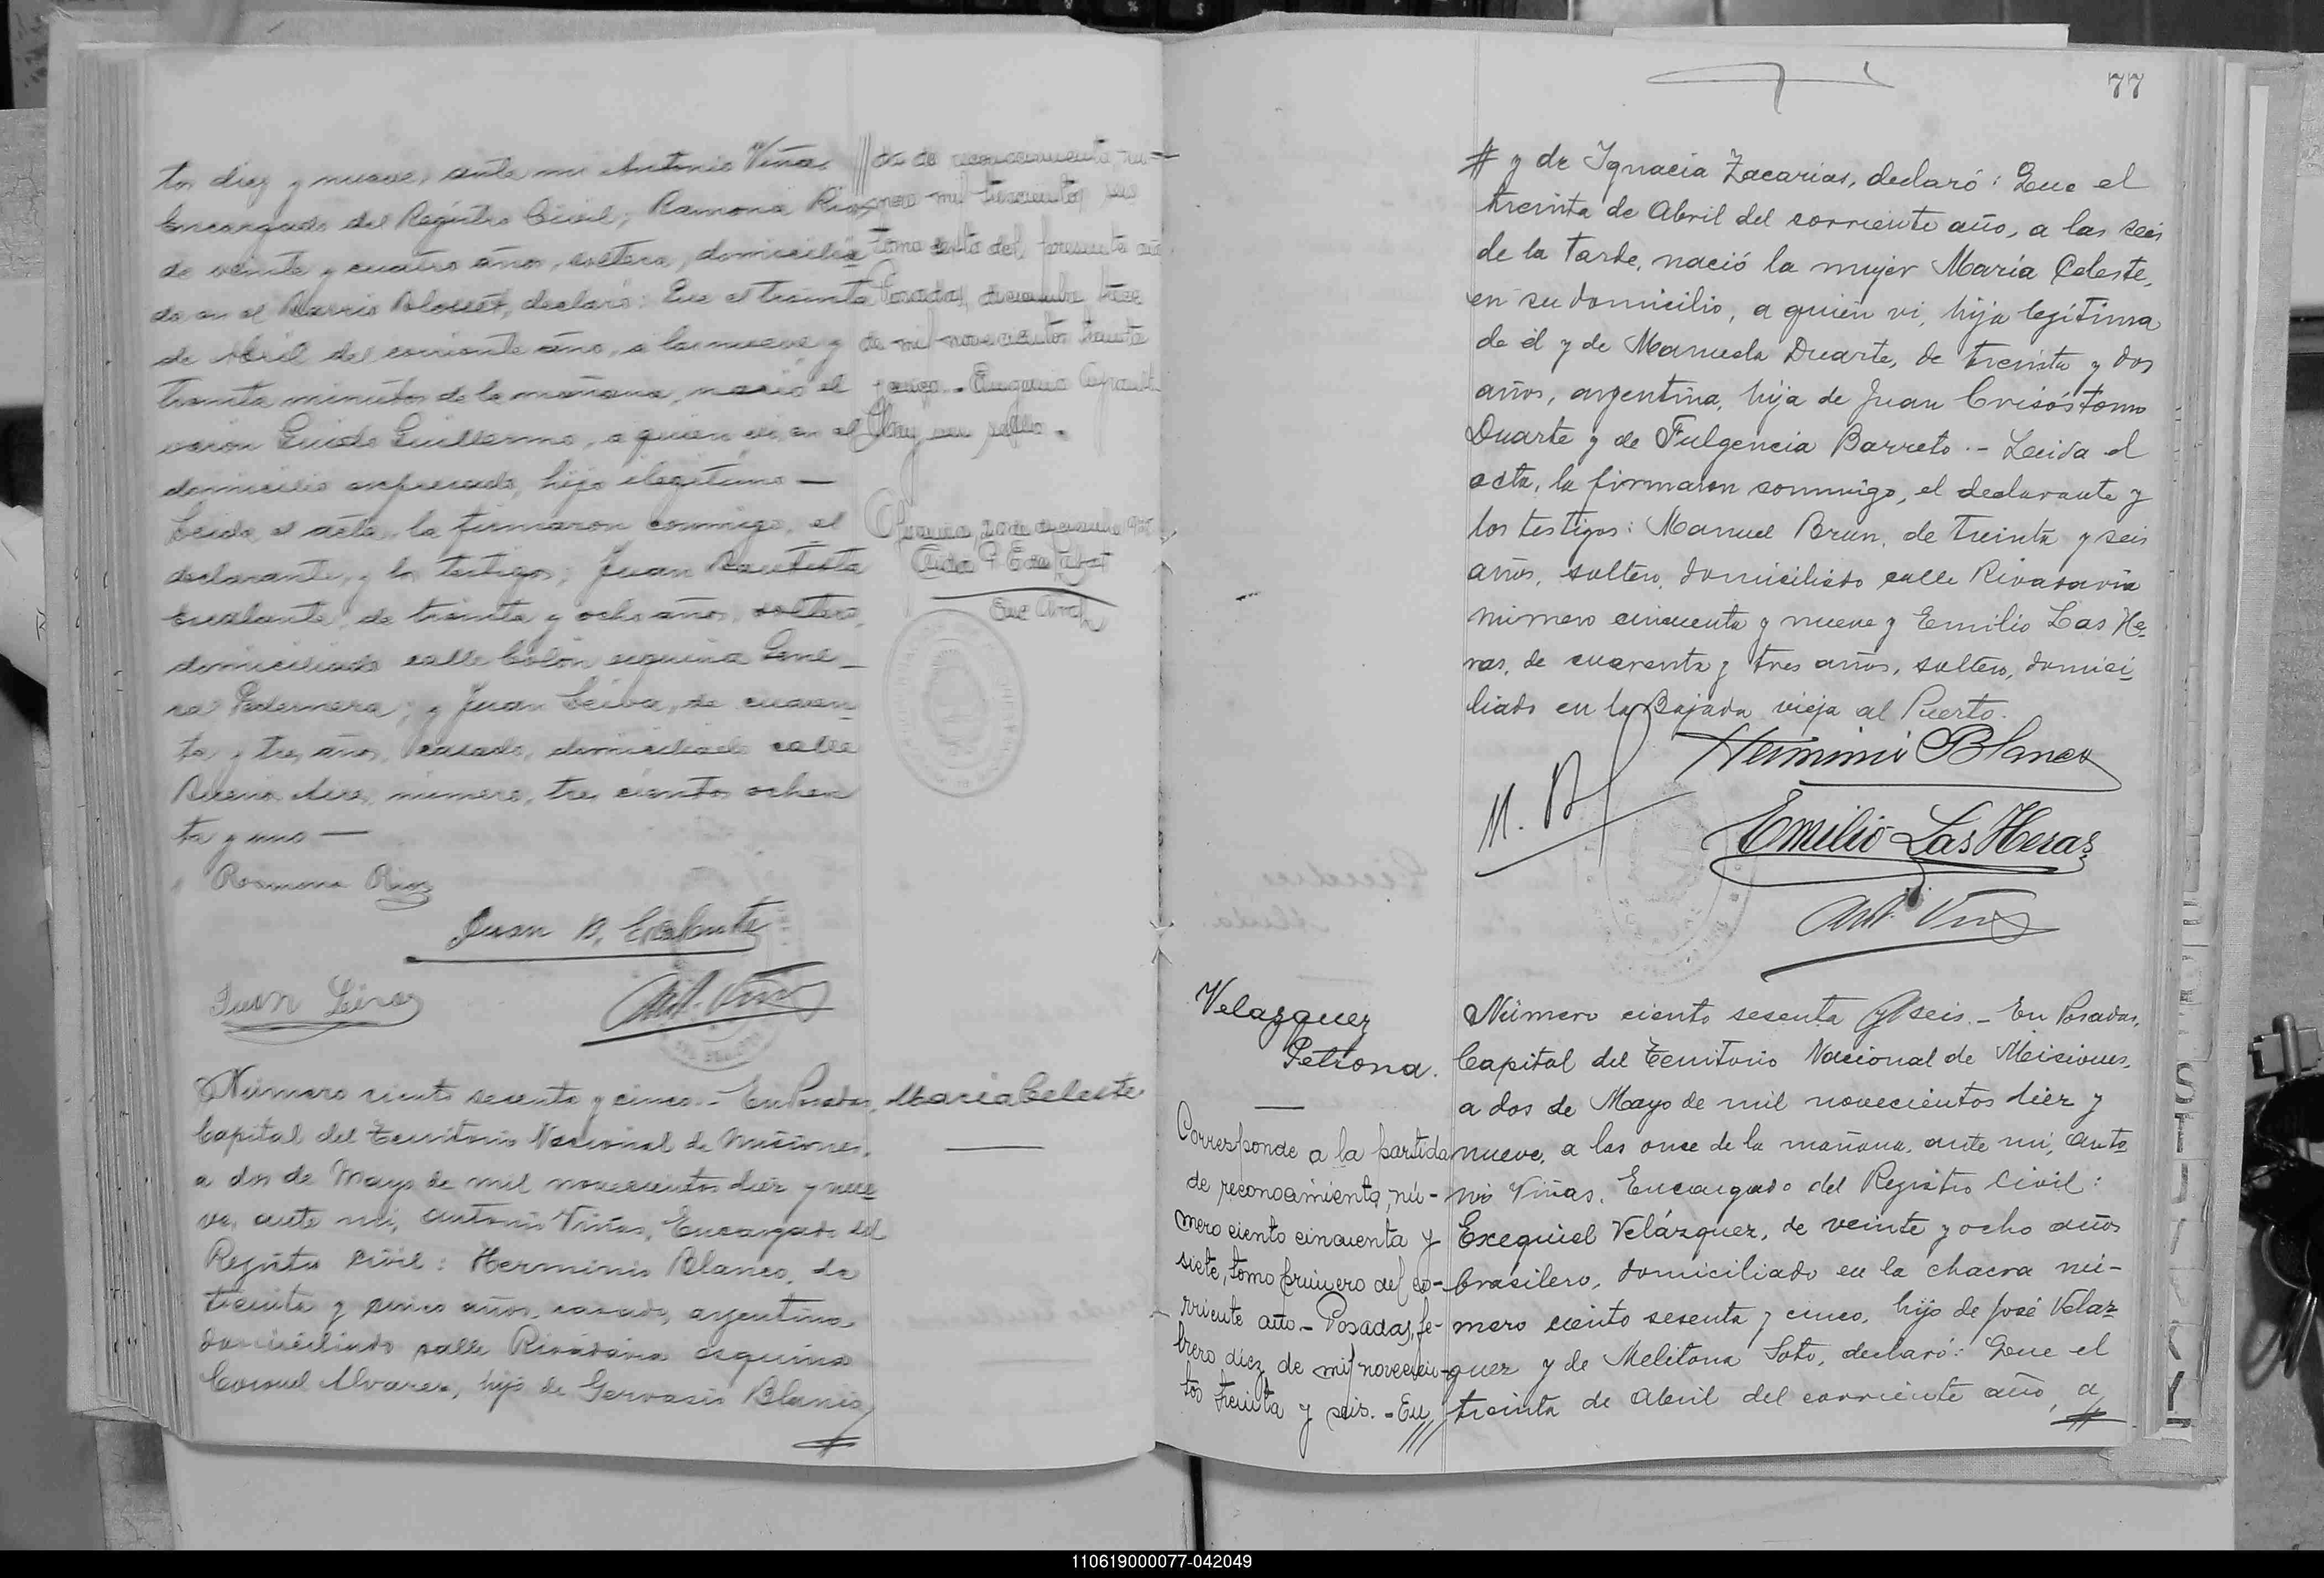 tos diez y nueve, ante mi Antonio Viñas
Encargado del Registro Civil; Ramona Rios
de veinte y cuatro años, soltera, domicilia
da en el Barrio, declaró: Que el treinta
de Abril del corriente año, a las nueve y
treinta minutos de la mañana, nació el
varon Guido Guillermo, a quien vi, en el
domicilio expresado, hijo ilegitimo —
Leida el acta, la firmaron conmigo, el
declarante, y los testigos; Juan Bautista
Escalante, de treinta y ocho años, soltero,
domiciliado calle Colón esquina Gene_
ral Pedernera; y Juan Leiva, de cuaren
ta y tres años, casado, domiciliado calle
Buenos Aires, número, tres cientos ochen
ta y uno —
Ramona Rios
Juan B. Escalante
Juan Leiva
Ant. Viñas
da de reconocimiento, nú-
mero mil trescientos
tomo sexto del presente año
Posadas, diciembre
de mil novecientos treinta
Número ciento sesenta y cinco.- En Posadas,
Capital del Territorio Nacional de Misiones,
a dos de Mayo de mil novecientos diez y nue_
ve, ante mi, Antonio Viñas, Encargado del
Registro Civil: Herminio Blanco, de
treinta y cinco años, casado, argentino,
domiciliado calle Rivadavia esquina
Coronel Alvarez, hijo de Gervasio Blanco
#
María Celeste
77
# y de Ignacia Zacarias, declaró: Que el
treinta de Abril del corriente año, a las seis
de la tarde, nació la mujer María Celeste,
en su domicilio, a quien vi, hija legítima
de él y de Manuela Duarte, de treinta y dos
años, argentina, hija de Juan Crisóstomo
Duarte y de Fulgencia Barreto.- Leida el
acta, la firmaron conmigo, el declarante y
los testigos: Manuel Brun, de treinta y seis
años, soltero, domiciliado calle Rivadavia
número cincuenta y nueve y Emilio Las He_
ras, de cuarenta y tres años, soltero, domici_
liado en la Bajada vieja al Puerto.
Herminio Blanco
M. B
Emilio Las Heras
Ant. Viñas
Velazquez
Petrona.
Corresponde a la partida
de reconocimiento, nú-
mero ciento cincuenta y
siete, tomo primero del co-
rriente año - Posadas, fe-
brero diez de mil novecien-
tos treinta y seis. - En ///
Número ciento sesenta y seis.- En Posadas,
Capital del Territorio Nacional de Misiones,
a dos de Mayo de mil novecientos diez y
nueve, a las once de la mañana, ante mi, Anto
nio Viñas, Encargado del Registro Civil:
Exequiel Velázquez, de veinte y ocho años
brasilero, domiciliado en la chacra nú-
mero ciento sesenta y cinco, hijo de José Velaz-
quez y de Melitona Soto, declaró: Que el
treinta de Abril del corriente año, a
#
110619000077-042049